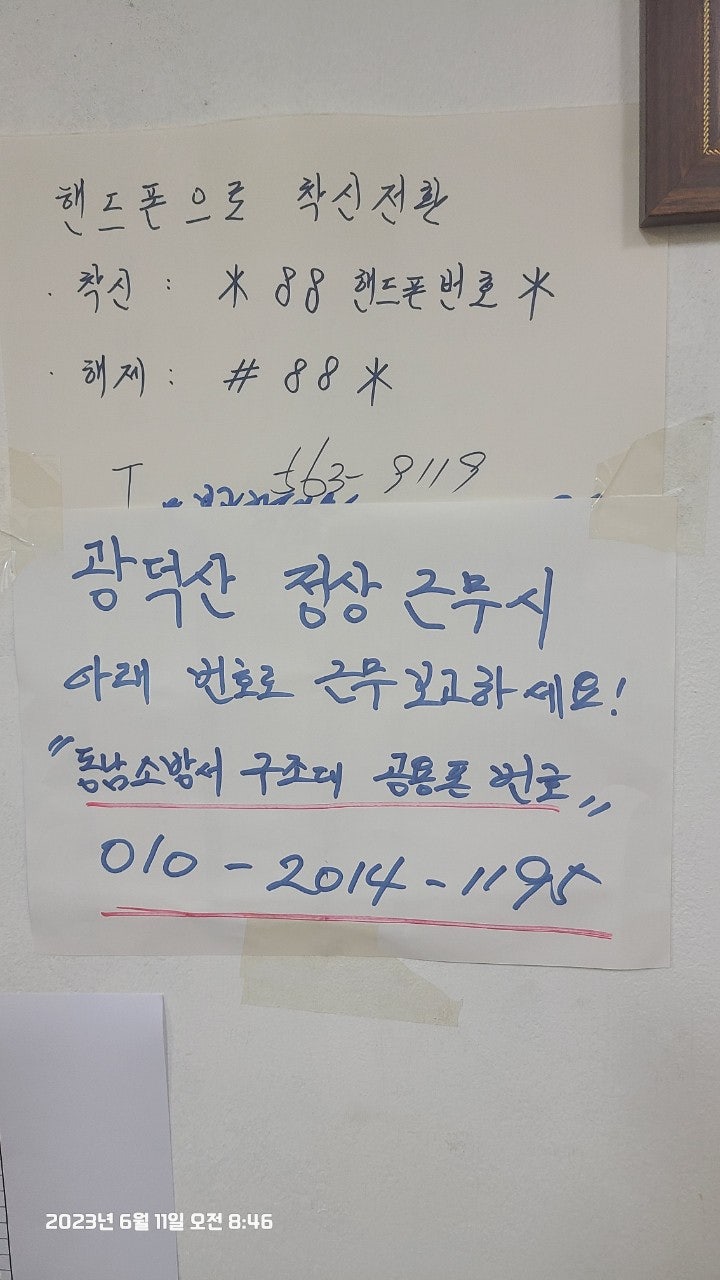 핸드폰으로 착신전환
· 착신 : * 88 핸드폰번호 *
· 해제 : # 88 *
T 563-9119
광덕산 정상 근무시
아래 번호로 근무보고하세요!
"동남소방서 구조대 공용폰 번호"
010-2014-1195
2023년 6월 11일 오전 8:46